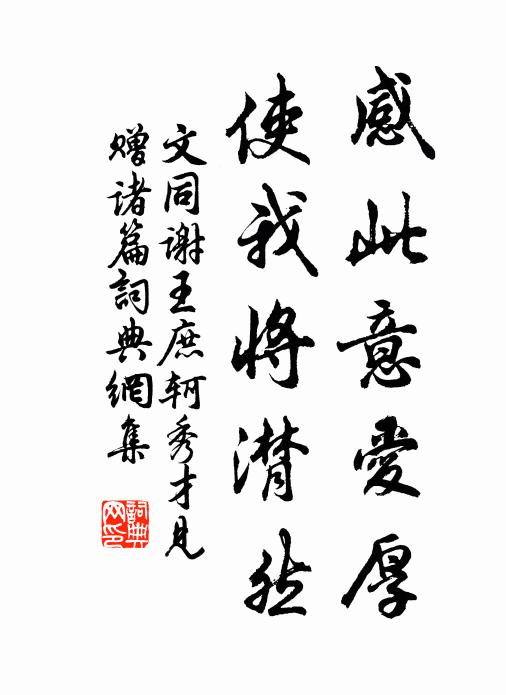 感此意愛厚
使我將潸然
文同謝王庶軻秀才見
贈諸篇詞典網集
詞典网印